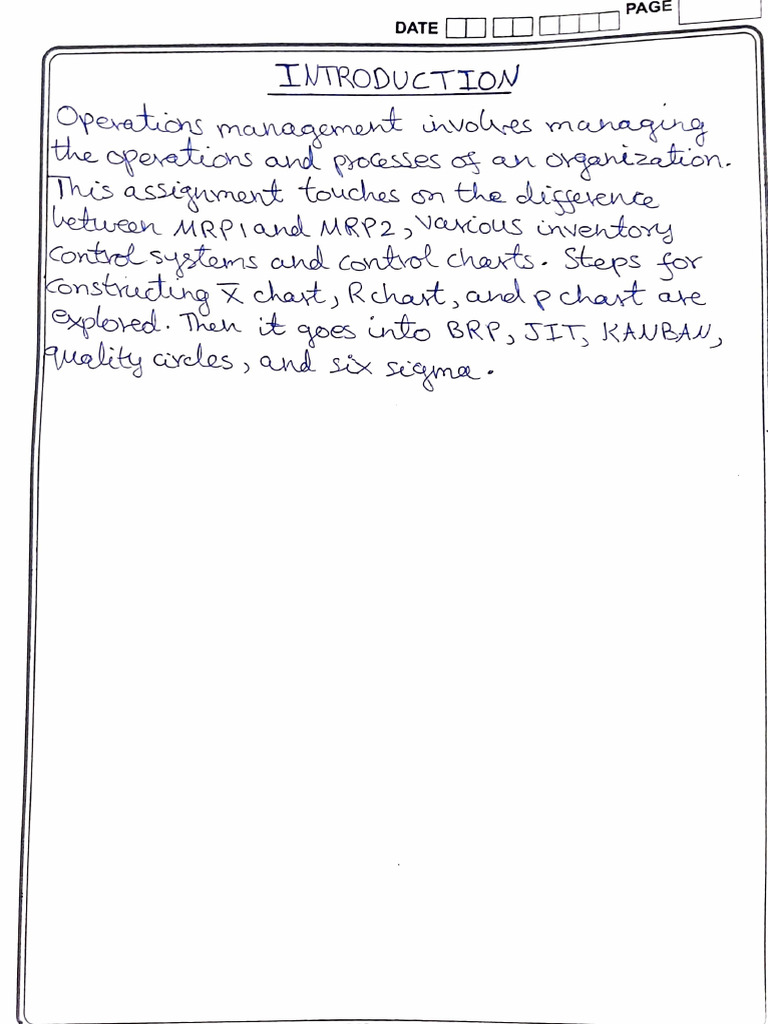 DATE PAGE
INTRODUCTION
Operations management involves managing
the operations and processes of an organization.
This assignment touches on the difference
between MRP1 and MRP2, various inventory
control systems and control charts. Steps for
constructing x̅ chart, R chart, and p chart are
explored. Then it goes into BRP, JIT, KANBAN,
quality circles, and six sigma.